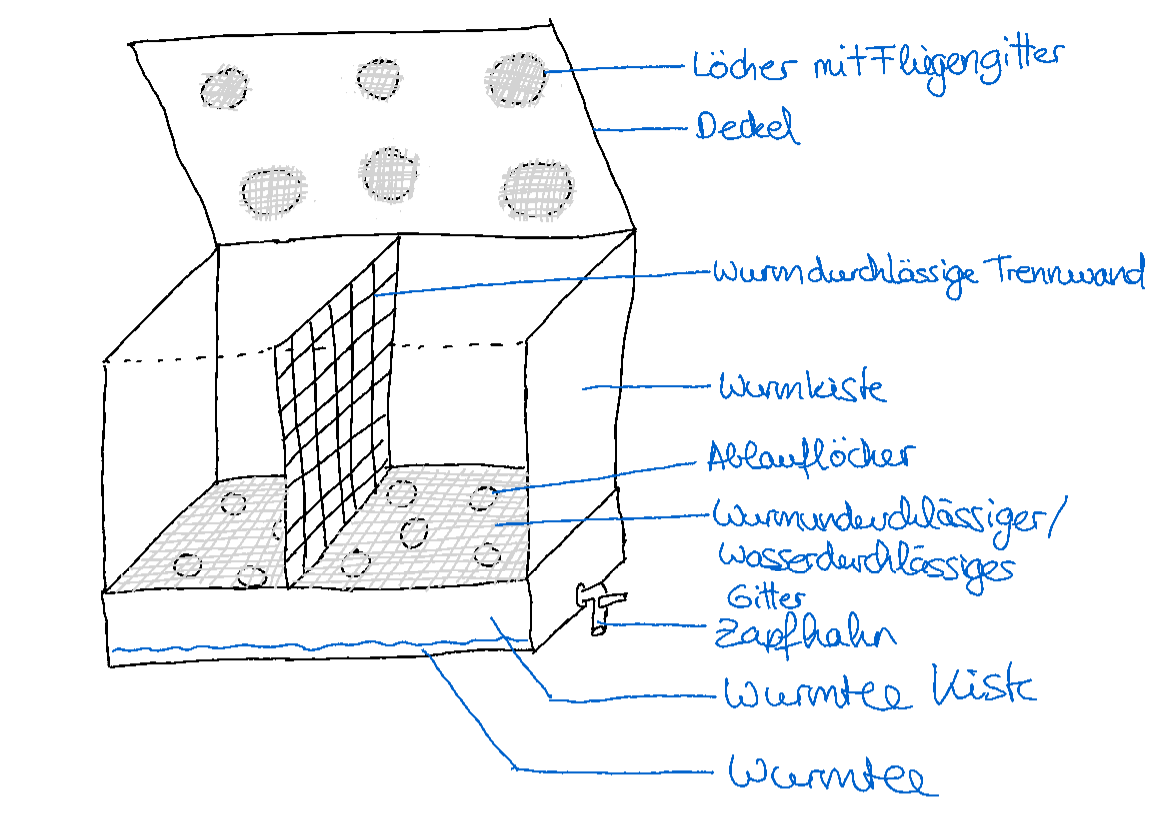 Löcher mit Fliegengitter
Deckel
Wurmdurchlässige Trennwand
Wurmkiste
Ablauflöcher
Wurmundurchlässiger/
Wasserdurchlässiges
Gitter
Zapfhahn
Wurmtee Kiste
Wurmtee